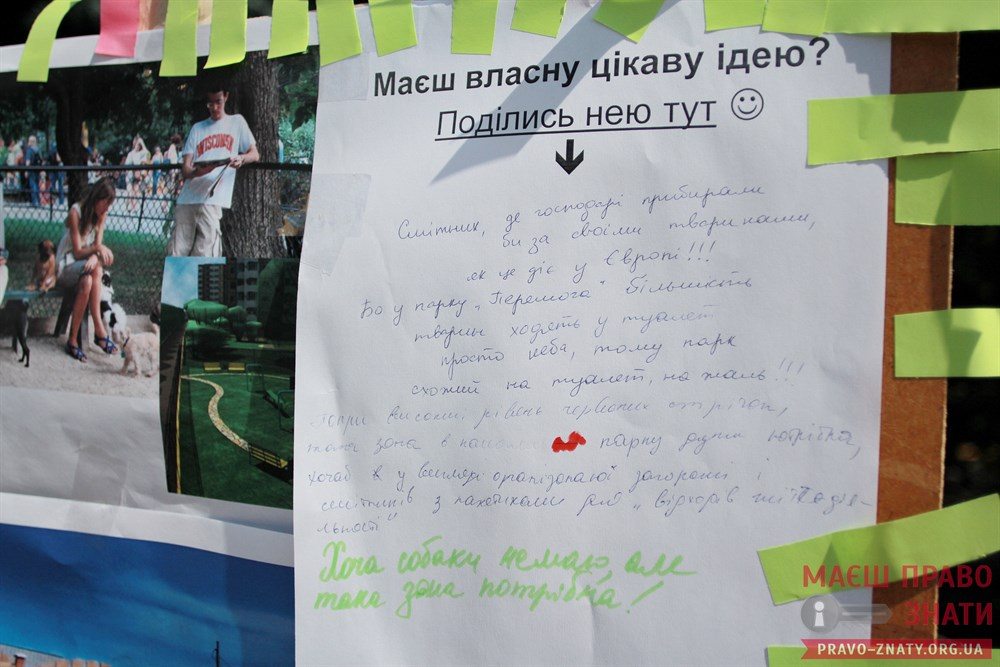 Маєш власну цікаву ідею?
Поділись нею тут ☺
Смітник, де господарі прибирали
би за своїми тваринами,
як це діє у Європі!!!
Бо у парку „Перемога" більшість
тварин ходять у туалет
просто неба, тому парк
схожий на туалет, на жаль!!!
високий рівень червоних стрічок,
така зона в парку дуже потрібна,
хочаб ж у вигляді організованої загорожі і
смітників з пакетиками для „відходів життєдія-
льності"
Хоча собаки немаю, але
така зона потрібна!
WISCONSIN
МАЄШ ПРАВО
ЗНАТИ
PRAVO-ZNATY.ORG.UA